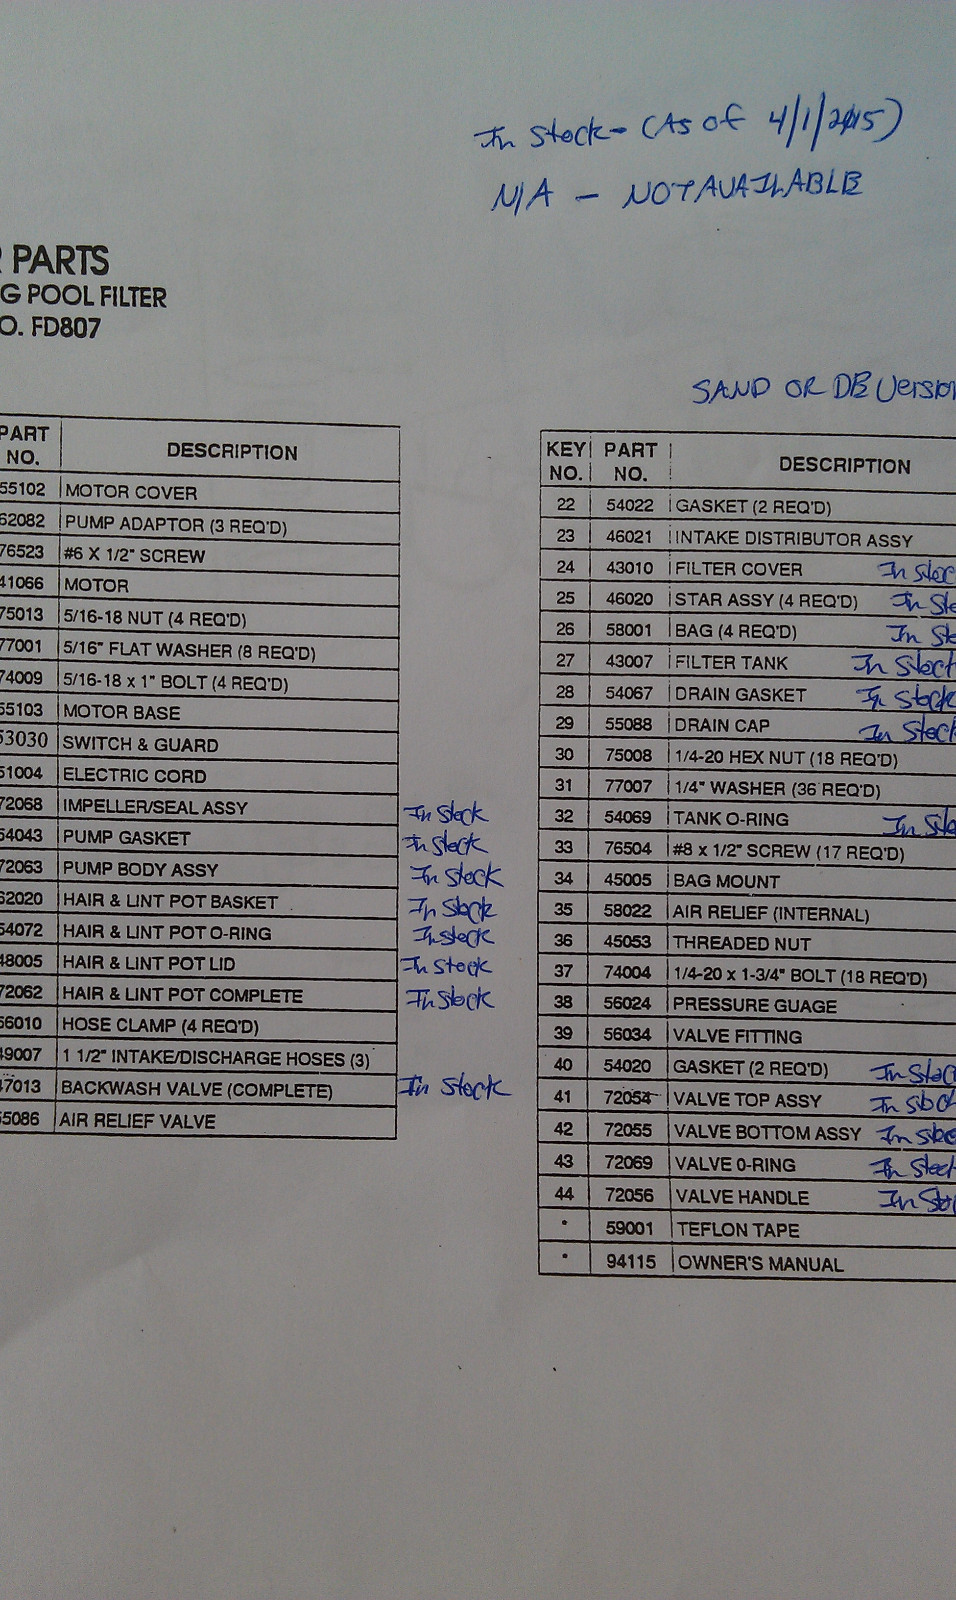 In Stock - (As of 4/1/2015)
N/A - NOT AVAILABLE
PARTS
G POOL FILTER
O. FD807
SAND OR DE Version
PART NO. DESCRIPTION
55102 MOTOR COVER
62082 PUMP ADAPTOR (3 REQ'D)
76523 #6 X 1/2" SCREW
41066 MOTOR
75013 5/16-18 NUT (4 REQ'D)
77001 5/16" FLAT WASHER (8 REQ'D)
74009 5/16-18 x 1" BOLT (4 REQ'D)
55103 MOTOR BASE
53030 SWITCH & GUARD
51004 ELECTRIC CORD
72068 IMPELLER/SEAL ASSY In Stock
54043 PUMP GASKET In Stock
72063 PUMP BODY ASSY In Stock
62020 HAIR & LINT POT BASKET In Stock
54072 HAIR & LINT POT O-RING In Stock
48005 HAIR & LINT POT LID In Stock
72062 HAIR & LINT POT COMPLETE In Stock
56010 HOSE CLAMP (4 REQ'D)
49007 1 1/2" INTAKE/DISCHARGE HOSES (3)
47013 BACKWASH VALVE (COMPLETE) In Stock
55086 AIR RELIEF VALVE
KEY NO. PART NO. DESCRIPTION
22 54022 GASKET (2 REQ'D)
23 46021 INTAKE DISTRIBUTOR ASSY
24 43010 FILTER COVER In Stoc
25 46020 STAR ASSY (4 REQ'D) In Sto
26 58001 BAG (4 REQ'D) In Sto
27 43007 FILTER TANK In Stock
28 54067 DRAIN GASKET In Stock
29 55088 DRAIN CAP In Stock
30 75008 1/4-20 HEX NUT (18 REQ'D)
31 77007 1/4" WASHER (36 REQ'D)
32 54069 TANK O-RING In Sto
33 76504 #8 x 1/2" SCREW (17 REQ'D)
34 45005 BAG MOUNT
35 58022 AIR RELIEF (INTERNAL)
36 45053 THREADED NUT
37 74004 1/4-20 x 1-3/4" BOLT (18 REQ'D)
38 56024 PRESSURE GUAGE
39 56034 VALVE FITTING
40 54020 GASKET (2 REQ'D) In Stoc
41 72054 VALVE TOP ASSY In Stoc
42 72055 VALVE BOTTOM ASSY In Stoc
43 72069 VALVE 0-RING In Stock
44 72056 VALVE HANDLE In Sto
* 59001 TEFLON TAPE
* 94115 OWNER'S MANUAL